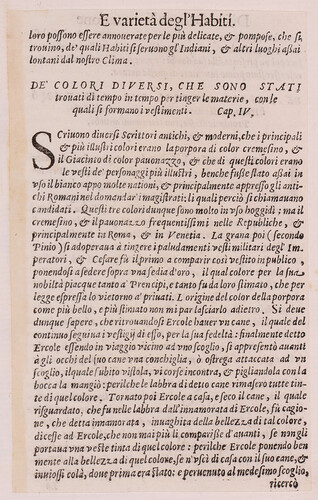 E varietà degl'Habiti.
loro possono essere annouerate per le più delicate, & pompose, che si
trouino, de' quali Habiti si seruono gl'Indiani, & altri luoghi assai
lontani dal nostro Clima.
DE' COLORI DIVERSI, CHE SONO STATI
trouati di tempo in tempo per tinger le materie, con le
quali si formano i vestimenti. Cap. IV.
SCriuono diuersi Scrittori antichi, & moderni, che i principali
& più illustri colori erano la porpora di color cremesino, &
il Giacinto di color pauonazzo, & che di questi colori erano
le vesti de' personaggi più illustri, benche fusse stato assai in
vso il bianco appo molte nationi, & principalmente appresso gli anti-
chi Romani nel domandar' i magistrati; li quali perciò si chiamauano
candidati. Questi tre colori dunque sono molto in vso hoggidì: ma il
cremesino, & il pauonazzo frequentissimi nelle Republiche, &
principalmente in Roma, & in Venetia. La grana poi (secondo
Pinio) si adoperaua à tingere i paludamenti vestimilitari degl' Im
peratori, & Cesare fù il primo a comparir così vestito in publico,
ponendosi a sedere sopra vna sedia d'oro, il qual colore per la sua
nobiltà piacque tanto a' Prencipi, e tanto fu da loro stimato, che per
legge espressa lo vietorno a' priuati. L'origine del color della porpora
come più bello, e più stimato non mi par lasciarlo adietro. Si deue
dunque sapere, che ritrouandosi Ercole hauer vn cane, il quale del
continuo seguiua i vestigij di esso, per la sua fedeltà: finalmente detto
Ercole essendo in viaggio vicino ad vno scoglio, si appresentò auanti
à gli occhi del suo cane vna conchiglia, ò ostrega attaccata ad vn
scoglio, il quale subito vistola, vi corse incontra, & pigliandola con la
bocca la mangiò: perilche le labbra di detto cane rimasero tutte tin-
te di quel colore. Tornato poi Ercole a casa, e seco il cane, il quale
risguardato, che fu nelle labbra dall'innamorata di Ercole, fù cagio-
ne, che detta innamorata, inuaghita della bellezza di tal colore,
dicesse ad Ercole, che non mai più li comparisse d'auanti, se non gli
portaua vna veste tinta di quel colore: perilche Ercole ponendo ben
mente alla bellezza di quel colore, se n'uscì di casa con il suo cane, &
inuiossi colà, doue prima era stato: e peruenuto al medesimo scoglio,
ricercò